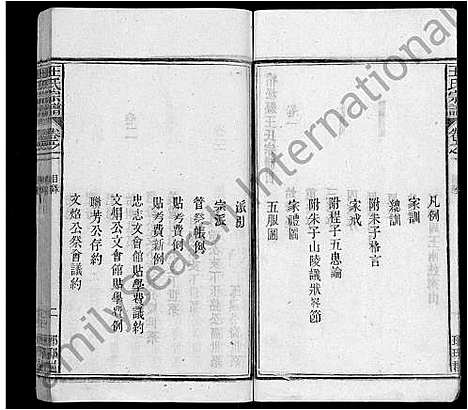 王氏宗譜
卷之一
凡例
家訓
附朱子格言
總訓
家戒
附程子五患論
附朱子山陵議狀畧節
家禮圖
五服圖
派引
宗派
管祭帳例
貼考費例
貼考費新例
忠志文會館貼學費議約
文煥公文會館貼學費例
聯芳公存約
文焰公祭會議約
王氏宗譜
卷之一
目錄
二
FamilySearch International